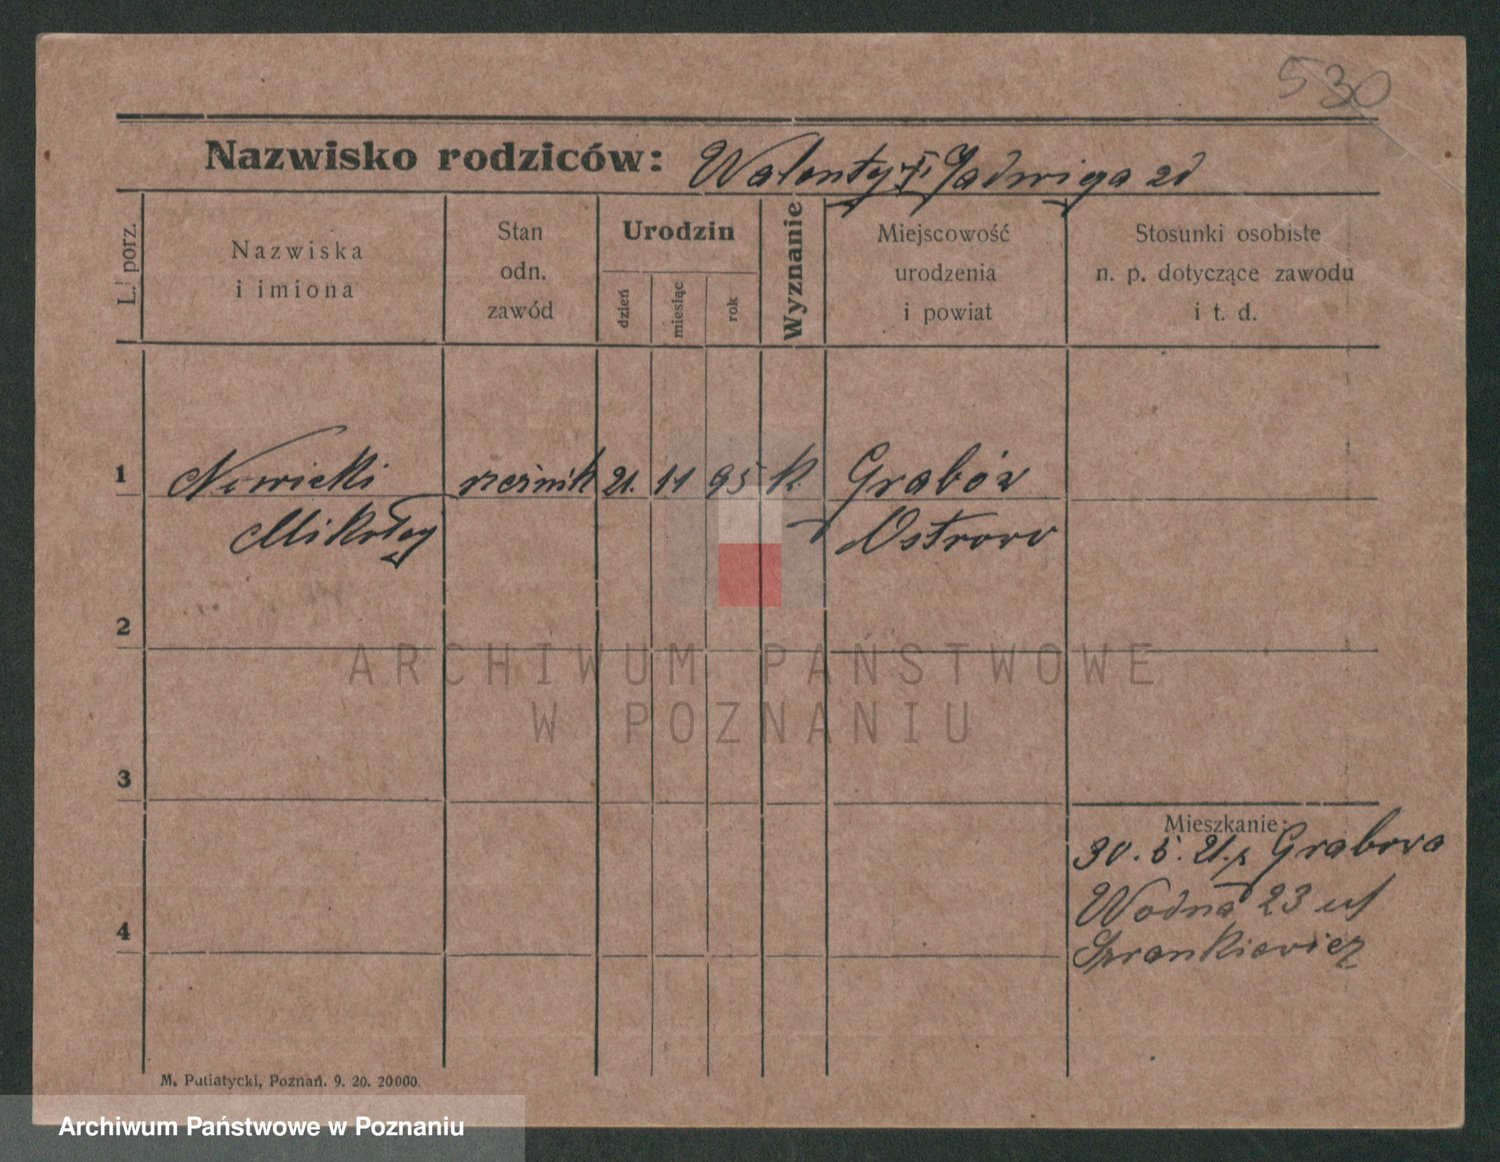 530
Nazwisko rodziców: Walenty Jadwiga
L. porz.
Nazwiska
i imiona
Stan
odn.
zawód
Urodzin
dzień
miesiąc
rok
Wyznanie
Miejscowość
urodzenia
i powiat
Stosunki osobiste
n. p. dotyczące zawodu
i t. d.
1
Nowicki rzeźnik 21. 11 95 k Grabów
Mikołay Ostrowo
2
ARCHIWUM PAŃSTWOWE
W POZNANIU
3
Mieszkanie:
30. 5. 21. z Grabowa
Wodna 23 u
4
M. Putiatycki, Poznań. 9. 20. 20000.
Archiwum Państwowe w Poznaniu